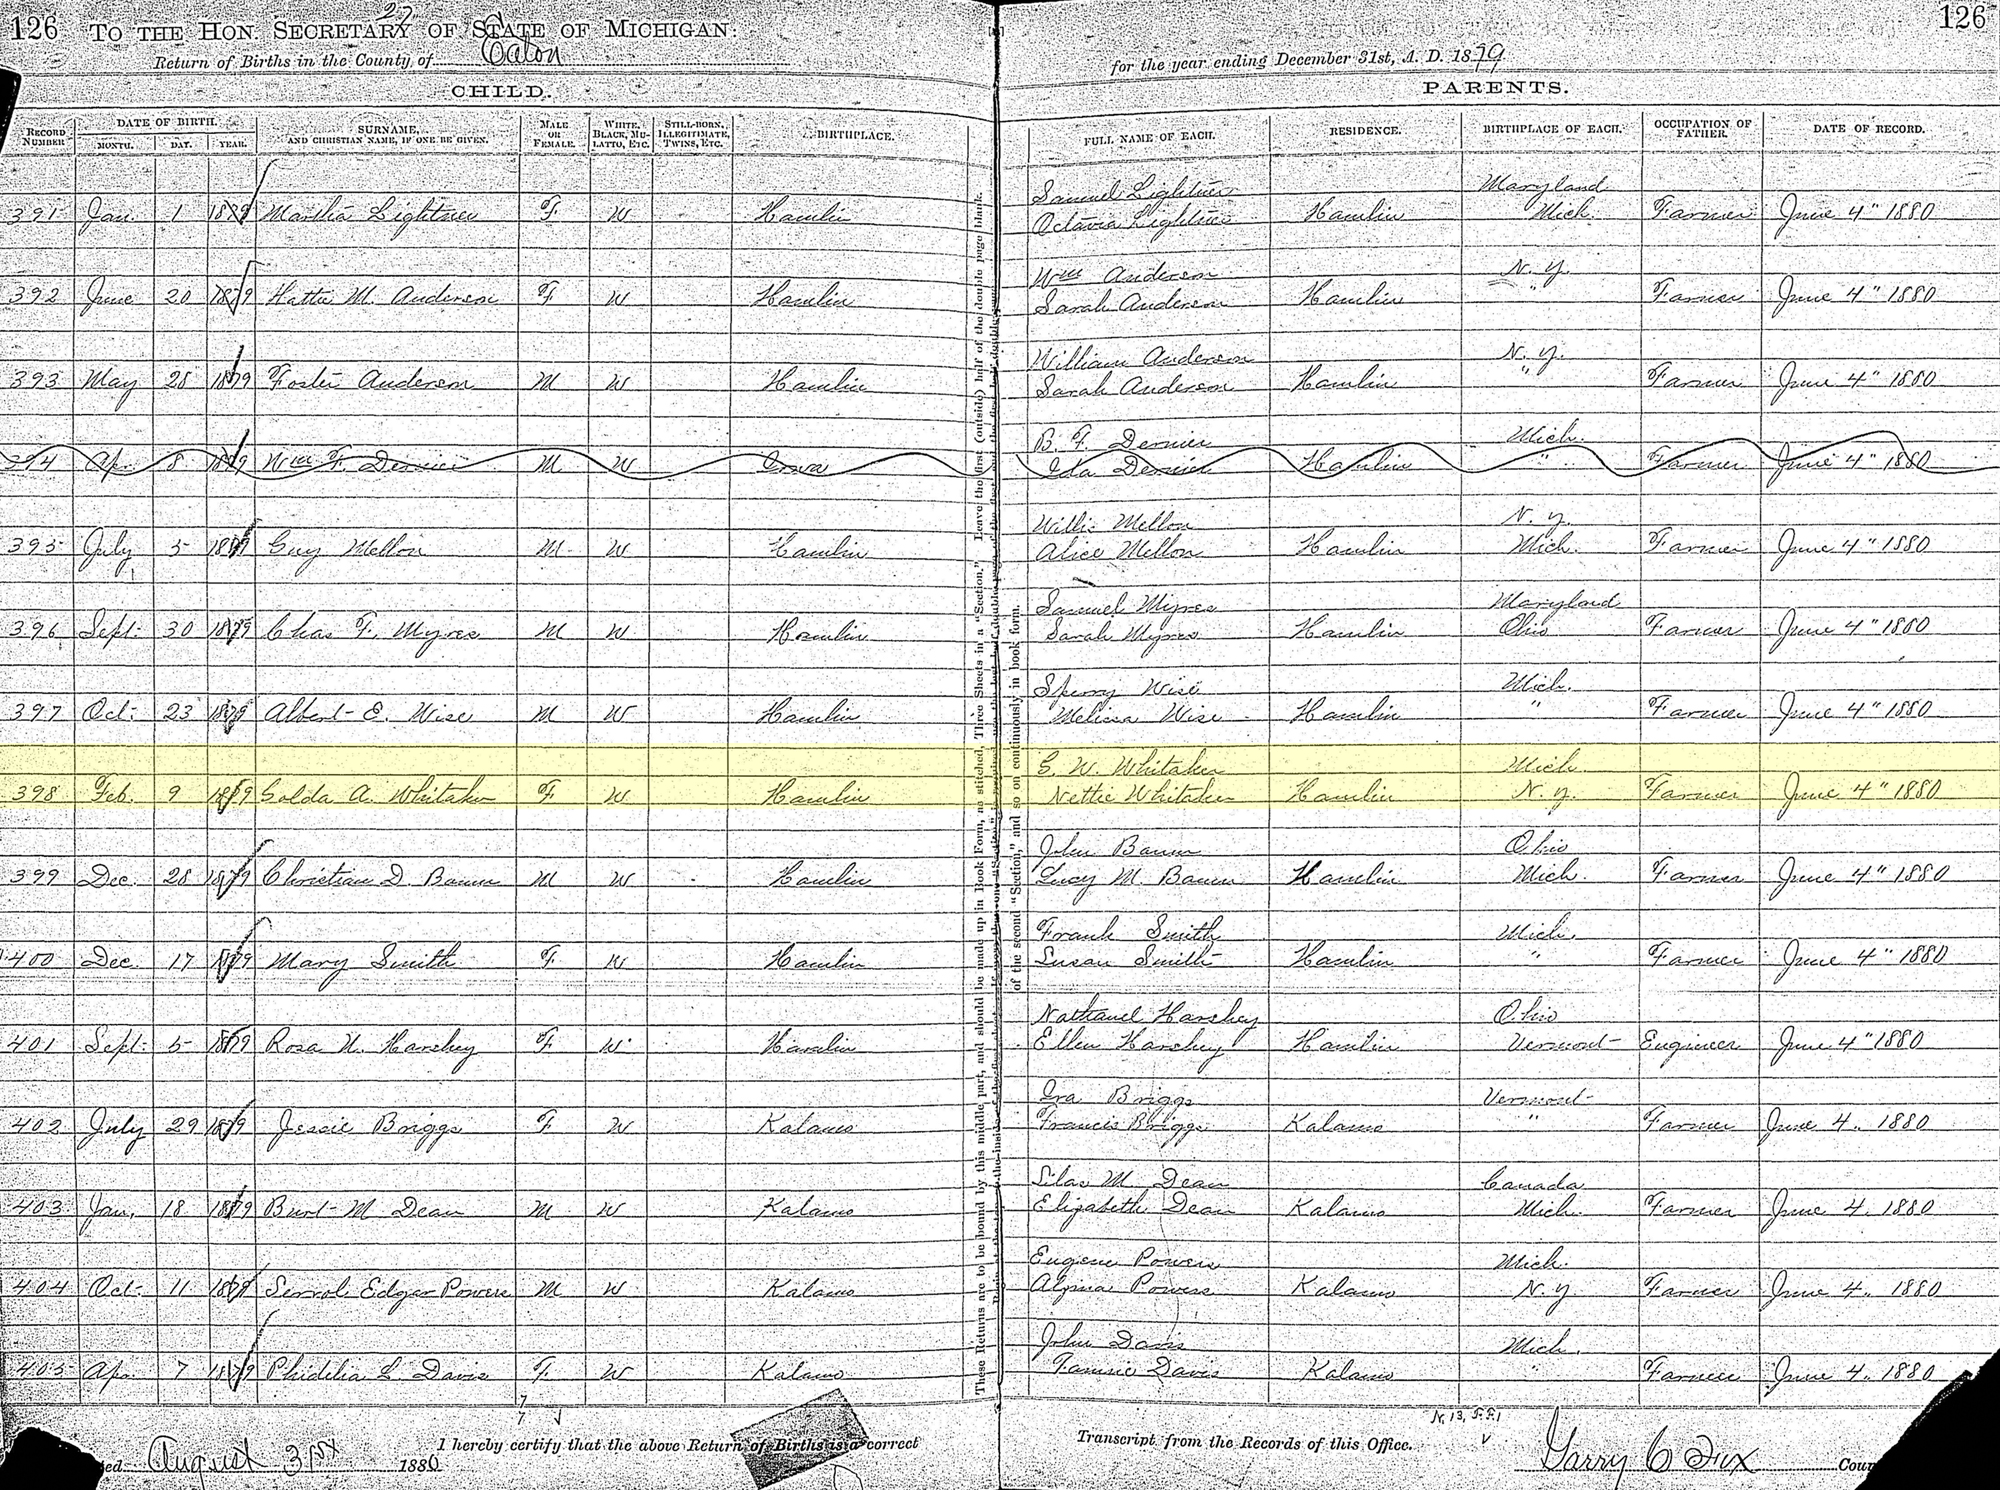 126 TO THE HON. SECRETARY OF STATE OF MICHIGAN: 126
27
Return of Births in the County of Eaton for the year ending December 31st, A. D. 1879
CHILD. PARENTS.
RECORD NUMBER DATE OF BIRTH. MONTH. DAY. YEAR. SURNAME, AND CHRISTIAN NAME, IF ONE BE GIVEN. MALE OR FEMALE. WHITE, BLACK, MULATTO, ETC. STILL-BORN, ILLEGITIMATE, TWINS, ETC. BIRTHPLACE. FULL NAME OF EACH. RESIDENCE. BIRTHPLACE OF EACH. OCCUPATION OF FATHER. DATE OF RECORD.
Samuel Lightner Maryland
391 Jan. 1 1879 Martha Lightner F W Hamlin Octavia Lightner Hamlin Mich. Farmer June 4" 1880
Wm Anderson N. Y.
392 June 20 1879 Hattie M. Anderson F W Hamlin Sarah Anderson Hamlin " Farmer June 4" 1880
William Anderson N. Y.
393 May 28 1879 Foster Anderson M W Hamlin Sarah Anderson Hamlin " Farmer June 4" 1880
B. F. Dernier Mich.
394 Ap. 8 1879 Wm F. Dernier M W Iowa Ida Dernier Hamlin " Farmer June 4" 1880
Willis Mellon N. Y.
395 July 5 1879 Guy Mellon M W Hamlin Alice Mellon Hamlin Mich. Farmer June 4" 1880
Samuel Myres Maryland
396 Sept. 30 1879 Chas F. Myres M W Hamlin Sarah Myres Hamlin Ohio Farmer June 4" 1880
Sperry Wise Mich.
397 Oct. 23 1879 Albert E. Wise M W Hamlin Melissa Wise Hamlin " Farmer June 4" 1880
G. W. Whitaker Mich.
398 Feb. 9 1879 Golda A. Whitaker F W Hamlin Nettie Whitaker Hamlin N. Y. Farmer June 4" 1880
John Baum Ohio
399 Dec. 28 1879 Christian D Baum M W Hamlin Lucy M. Baum Hamlin Mich. Farmer June 4" 1880
Frank Smith Mich.
400 Dec. 17 1879 Mary Smith F W Hamlin Susan Smith Hamlin " Farmer June 4" 1880
Nathanel Harshey Ohio
401 Sept. 5 1879 Rosa N. Harshey F W Hamlin Ellen Harshey Hamlin Vermont Engineer June 4" 1880
Ira Briggs Vermont
402 July 29 1879 Jessie Briggs F W Kalamo Francis Briggs Kalamo " Farmer June 4 .. 1880
Silas M Dean Canada
403 Jan. 18 1879 Burt M Dean M W Kalamo Elizabeth Dean Kalamo Mich. Farmer June 4. 1880
Eugene Powers Mich.
404 Oct. 11 1879 Edgar Powers M W Kalamo Powers Kalamo N. Y. Farmer June 4 .. 1880
John Davis Mich.
405 Ap. 7 1879 Phidelia L Davis F W Kalamo Davis Kalamo " Farmer June 4 .. 1880
These Returns are to be bound by this middle part, and should be made up in Book Form, no stitched, Three Sheets in a "Section." Leave the first (outside) half of the double page blank.
of the second "Section," and so on continuously in book form.
I hereby certify that the above Return of Births is a correct Transcript from the Records of this Office.
August 31st 1880 Garry C Fox